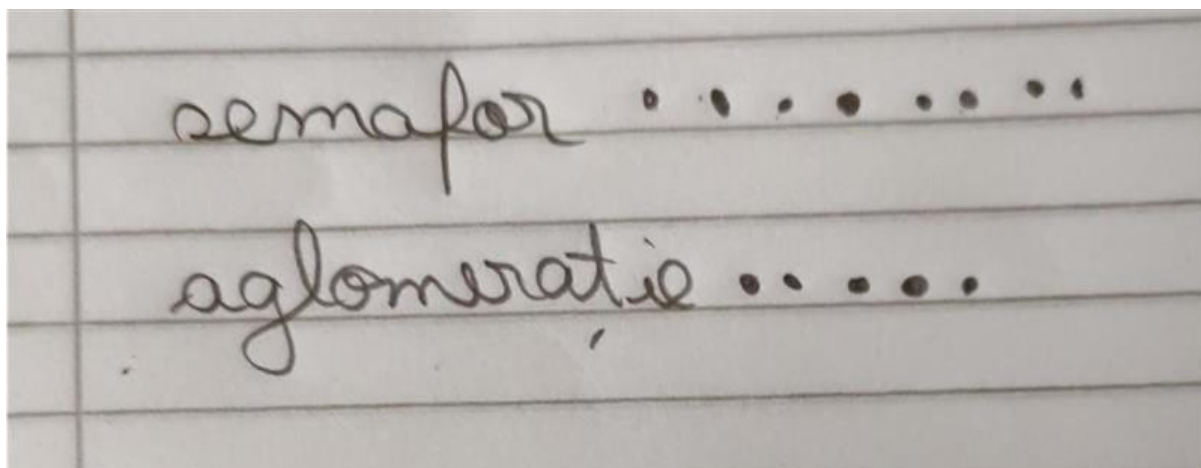 semafor ........
aglomerație .....